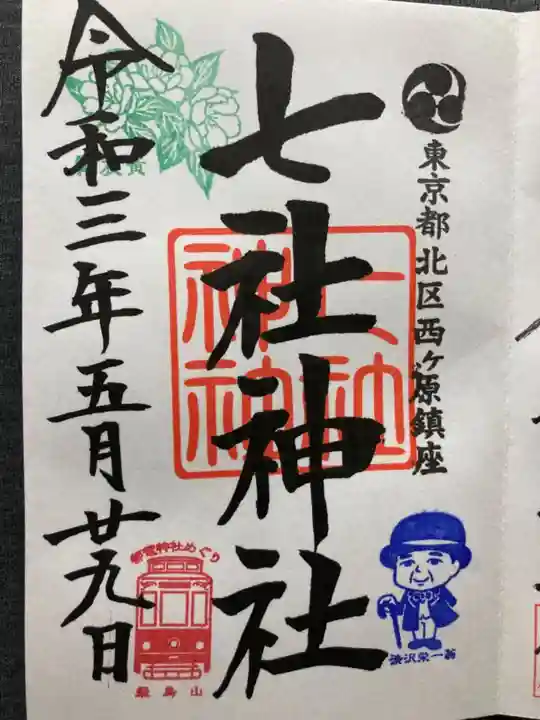 東京都北区西ヶ原鎮座
七社神社
七社
神社
令和三年五月廿九日
都電神社めぐり
飛鳥山
渋沢栄一翁